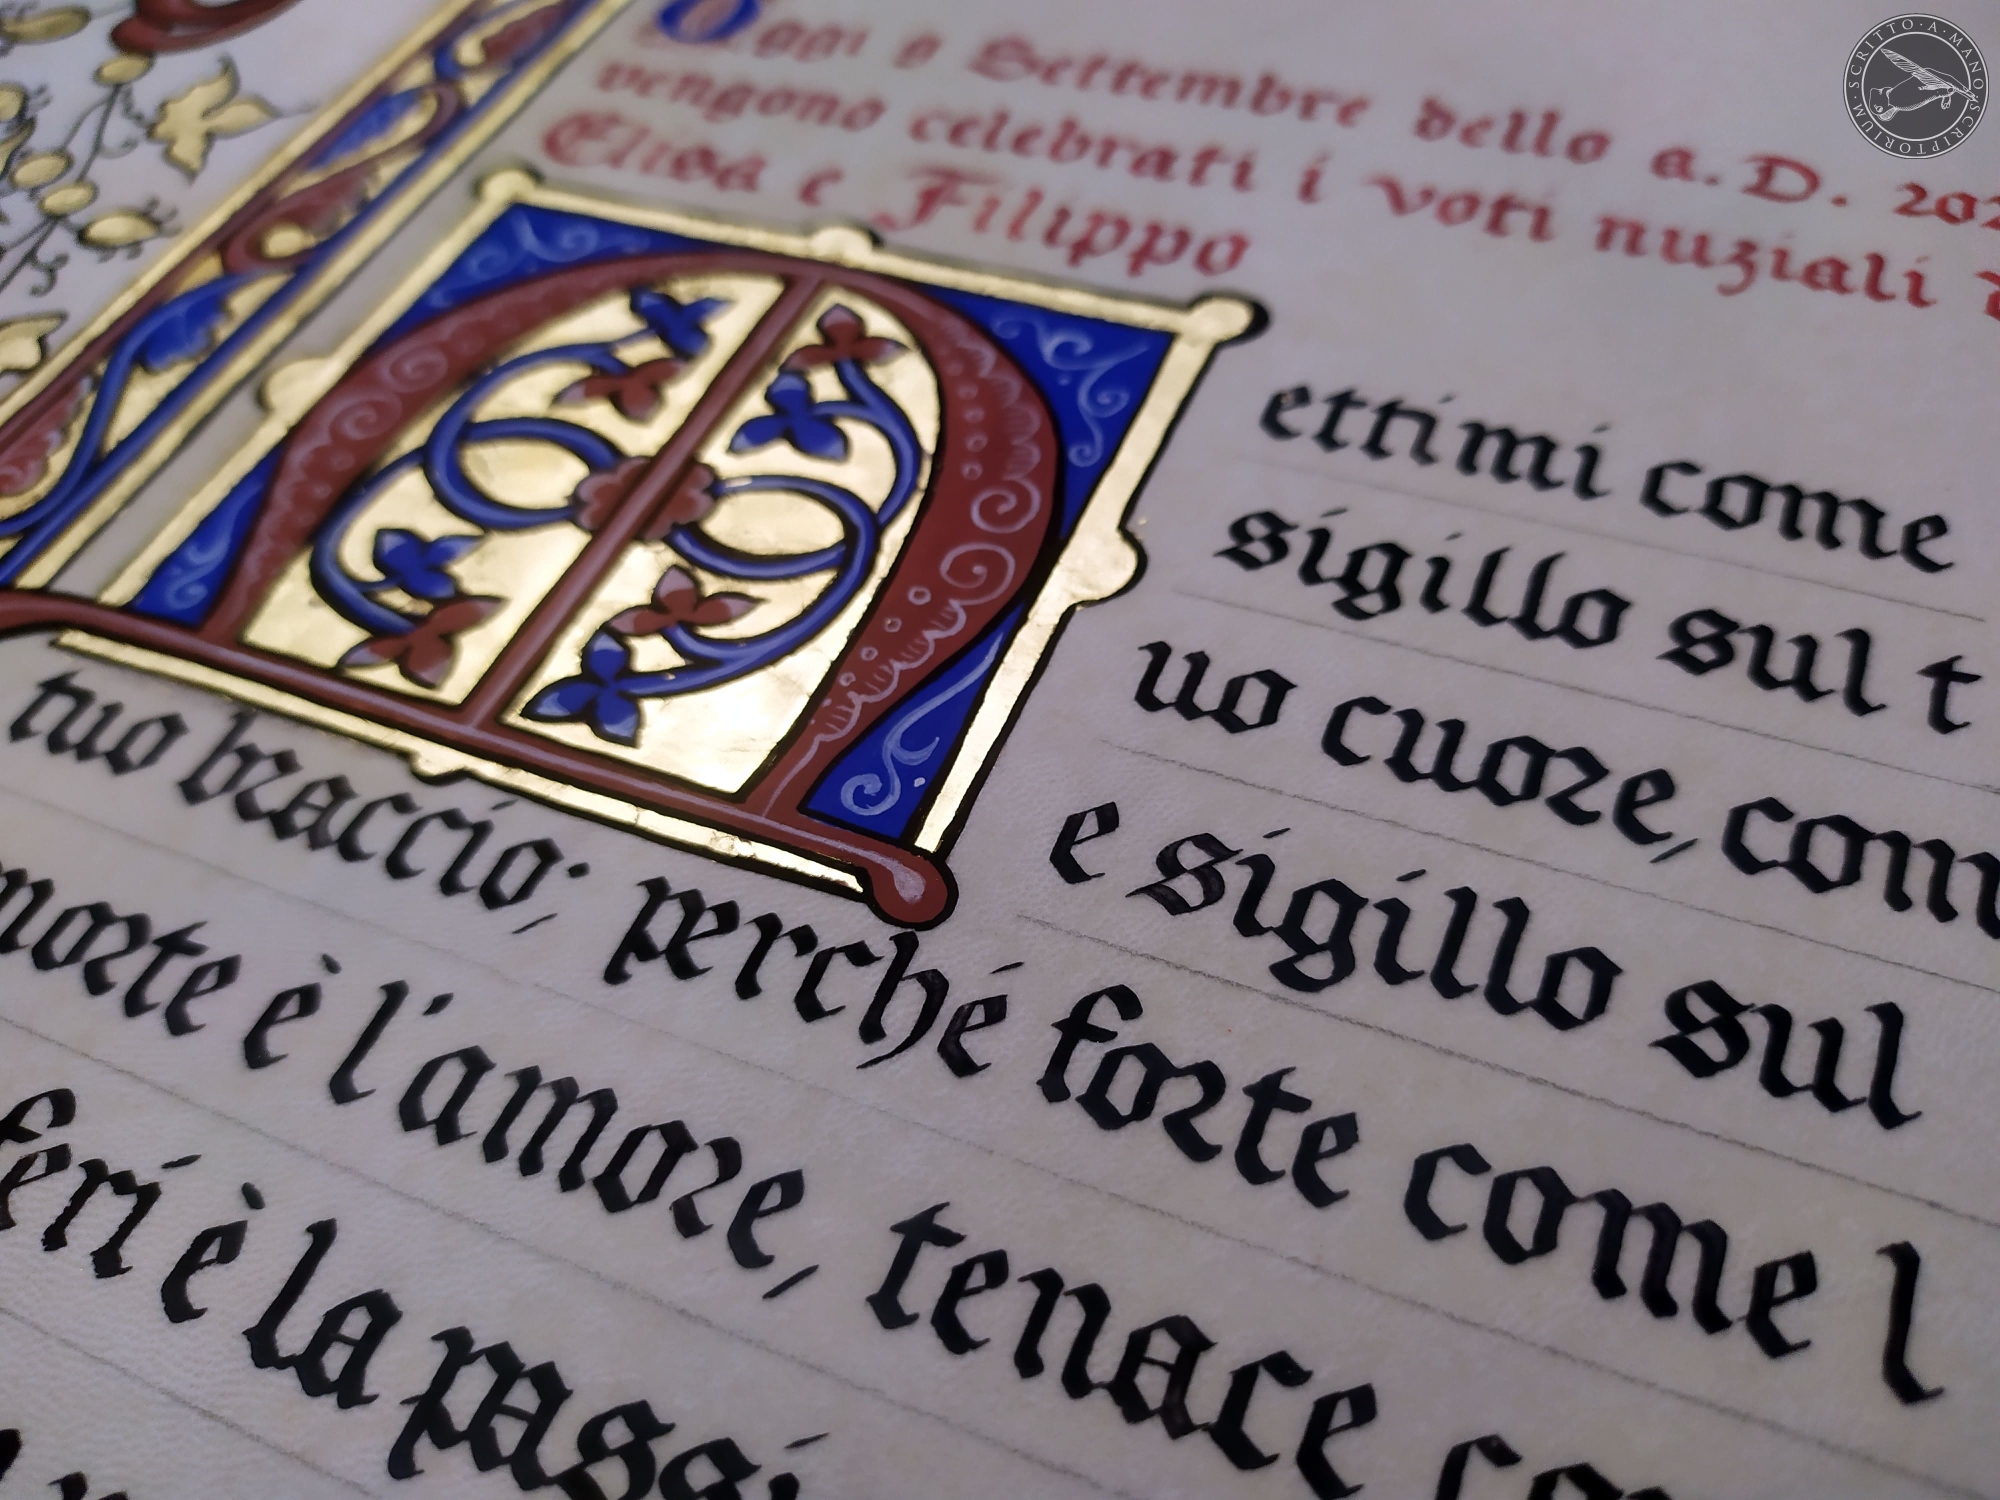 Oggi 9 Settembre dello a.D. 202
vengono celebrati i voti nuziali d
Elisa e Filippo
Mettimi come
sigillo sul t
uo cuore, com
e sigillo sul
tuo braccio; perché forte come l
morte è l'amore, tenace co
feri è la passi
SCRITTO · A · MANO · SCRIPTORIUM ·